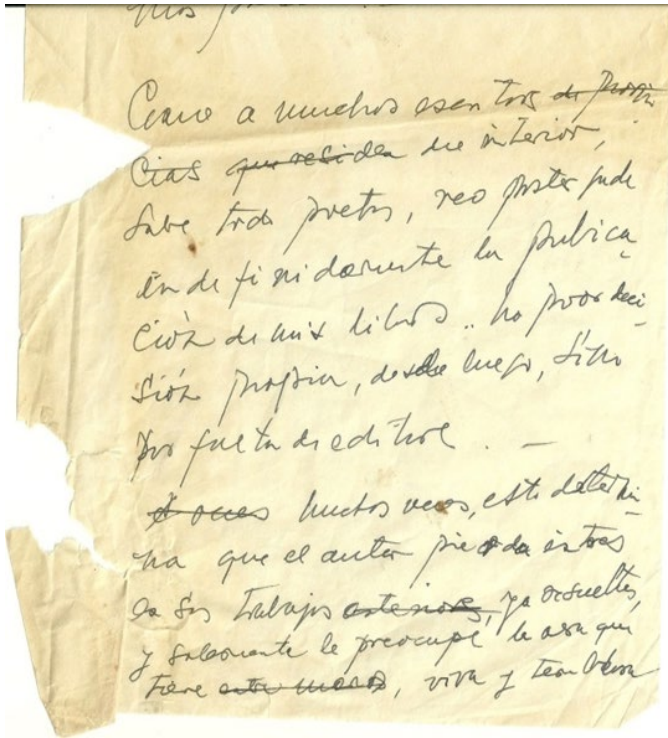 Como a muchos escritores de provin
cias que residen del interior,
sobre todo poetas, veo postergada
indefinidamente la publica
ción de mis libros .. no por deci
sión propia, desde luego, sino
por falta de editores . —
A veces Muchas veces, esto determi
na que el autor pierda interés
en sus trabajos anteriores, ya resueltos,
y solamente le preocupe la obra que
tiene entre manos, viva y temblorosa